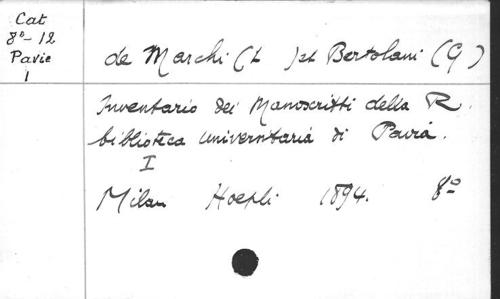 Cat
8º-12
Pavie
1
de Marchi (L ) et Bertolani (G )
Inventario dei Manoscritti della R.
biblioteca universitaria di Pavia.
I
Milan Hoepli 1894. 8º